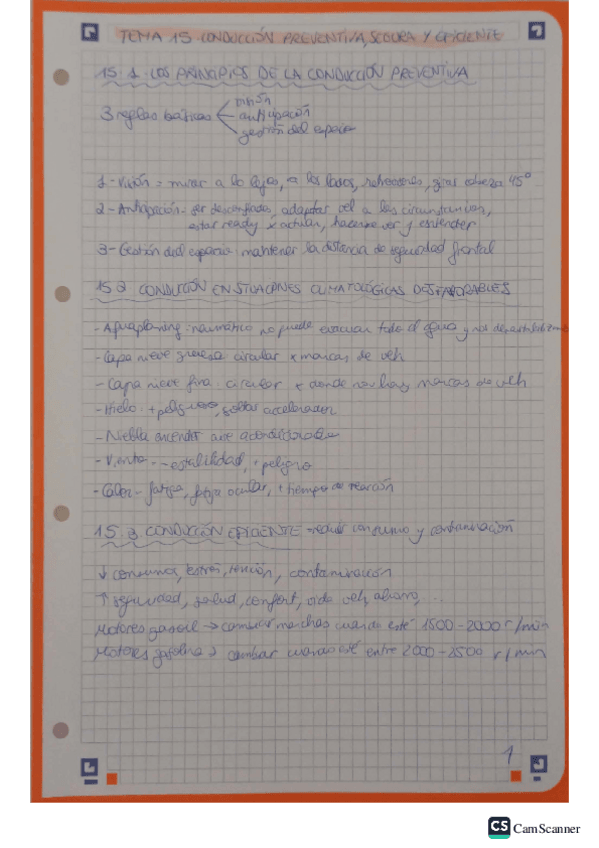 TEMA 15 CONDUCCIÓN PREVENTIVA, SEGURA Y EFICIENTE
15.1 LOS PRINCIPIOS DE LA CONDUCCIÓN PREVENTIVA
3 reglas básicas visión
anticipación
gestión del espacio
1 - Visión = mirar a lo lejos, a los lados, retrovisores, girar cabeza 45°
2 - Anticipación = ser desconfiado, adaptar vel a las circunstancias,
estar ready x actuar, hacerse ver y entender
3 - Gestión del espacio: mantener la distancia de seguridad frontal
15.2 CONDUCCIÓN EN SITUACIONES CLIMATOLÓGICAS DESFAVORABLES
- Aquaplaning: neumático no puede evacuar todo el agua y nos
- Capa nieve gruesa circular x marcas de veh
- Capa nieve fina circular x donde no hay marcas de veh
- Hielo: + peligroso, soltar acelerador
- Niebla encender aire acondicionado
- Viento - estabilidad, + peligro
- Calor - fatiga, fatiga ocular, + tiempo de reacción
15.3 CONDUCCIÓN EFICIENTE = reducir consumo y contaminación
↓ consumo, estrés, tensión, contaminación
↑ seguridad, salud, confort, vida veh, ahorro, ...
Motores gasoil → cambiar marchas cuando esté 1500 - 2000 r/min
Motores gasolina → cambiar cuando esté entre 2000 - 2500 r/min
1
CS CamScanner